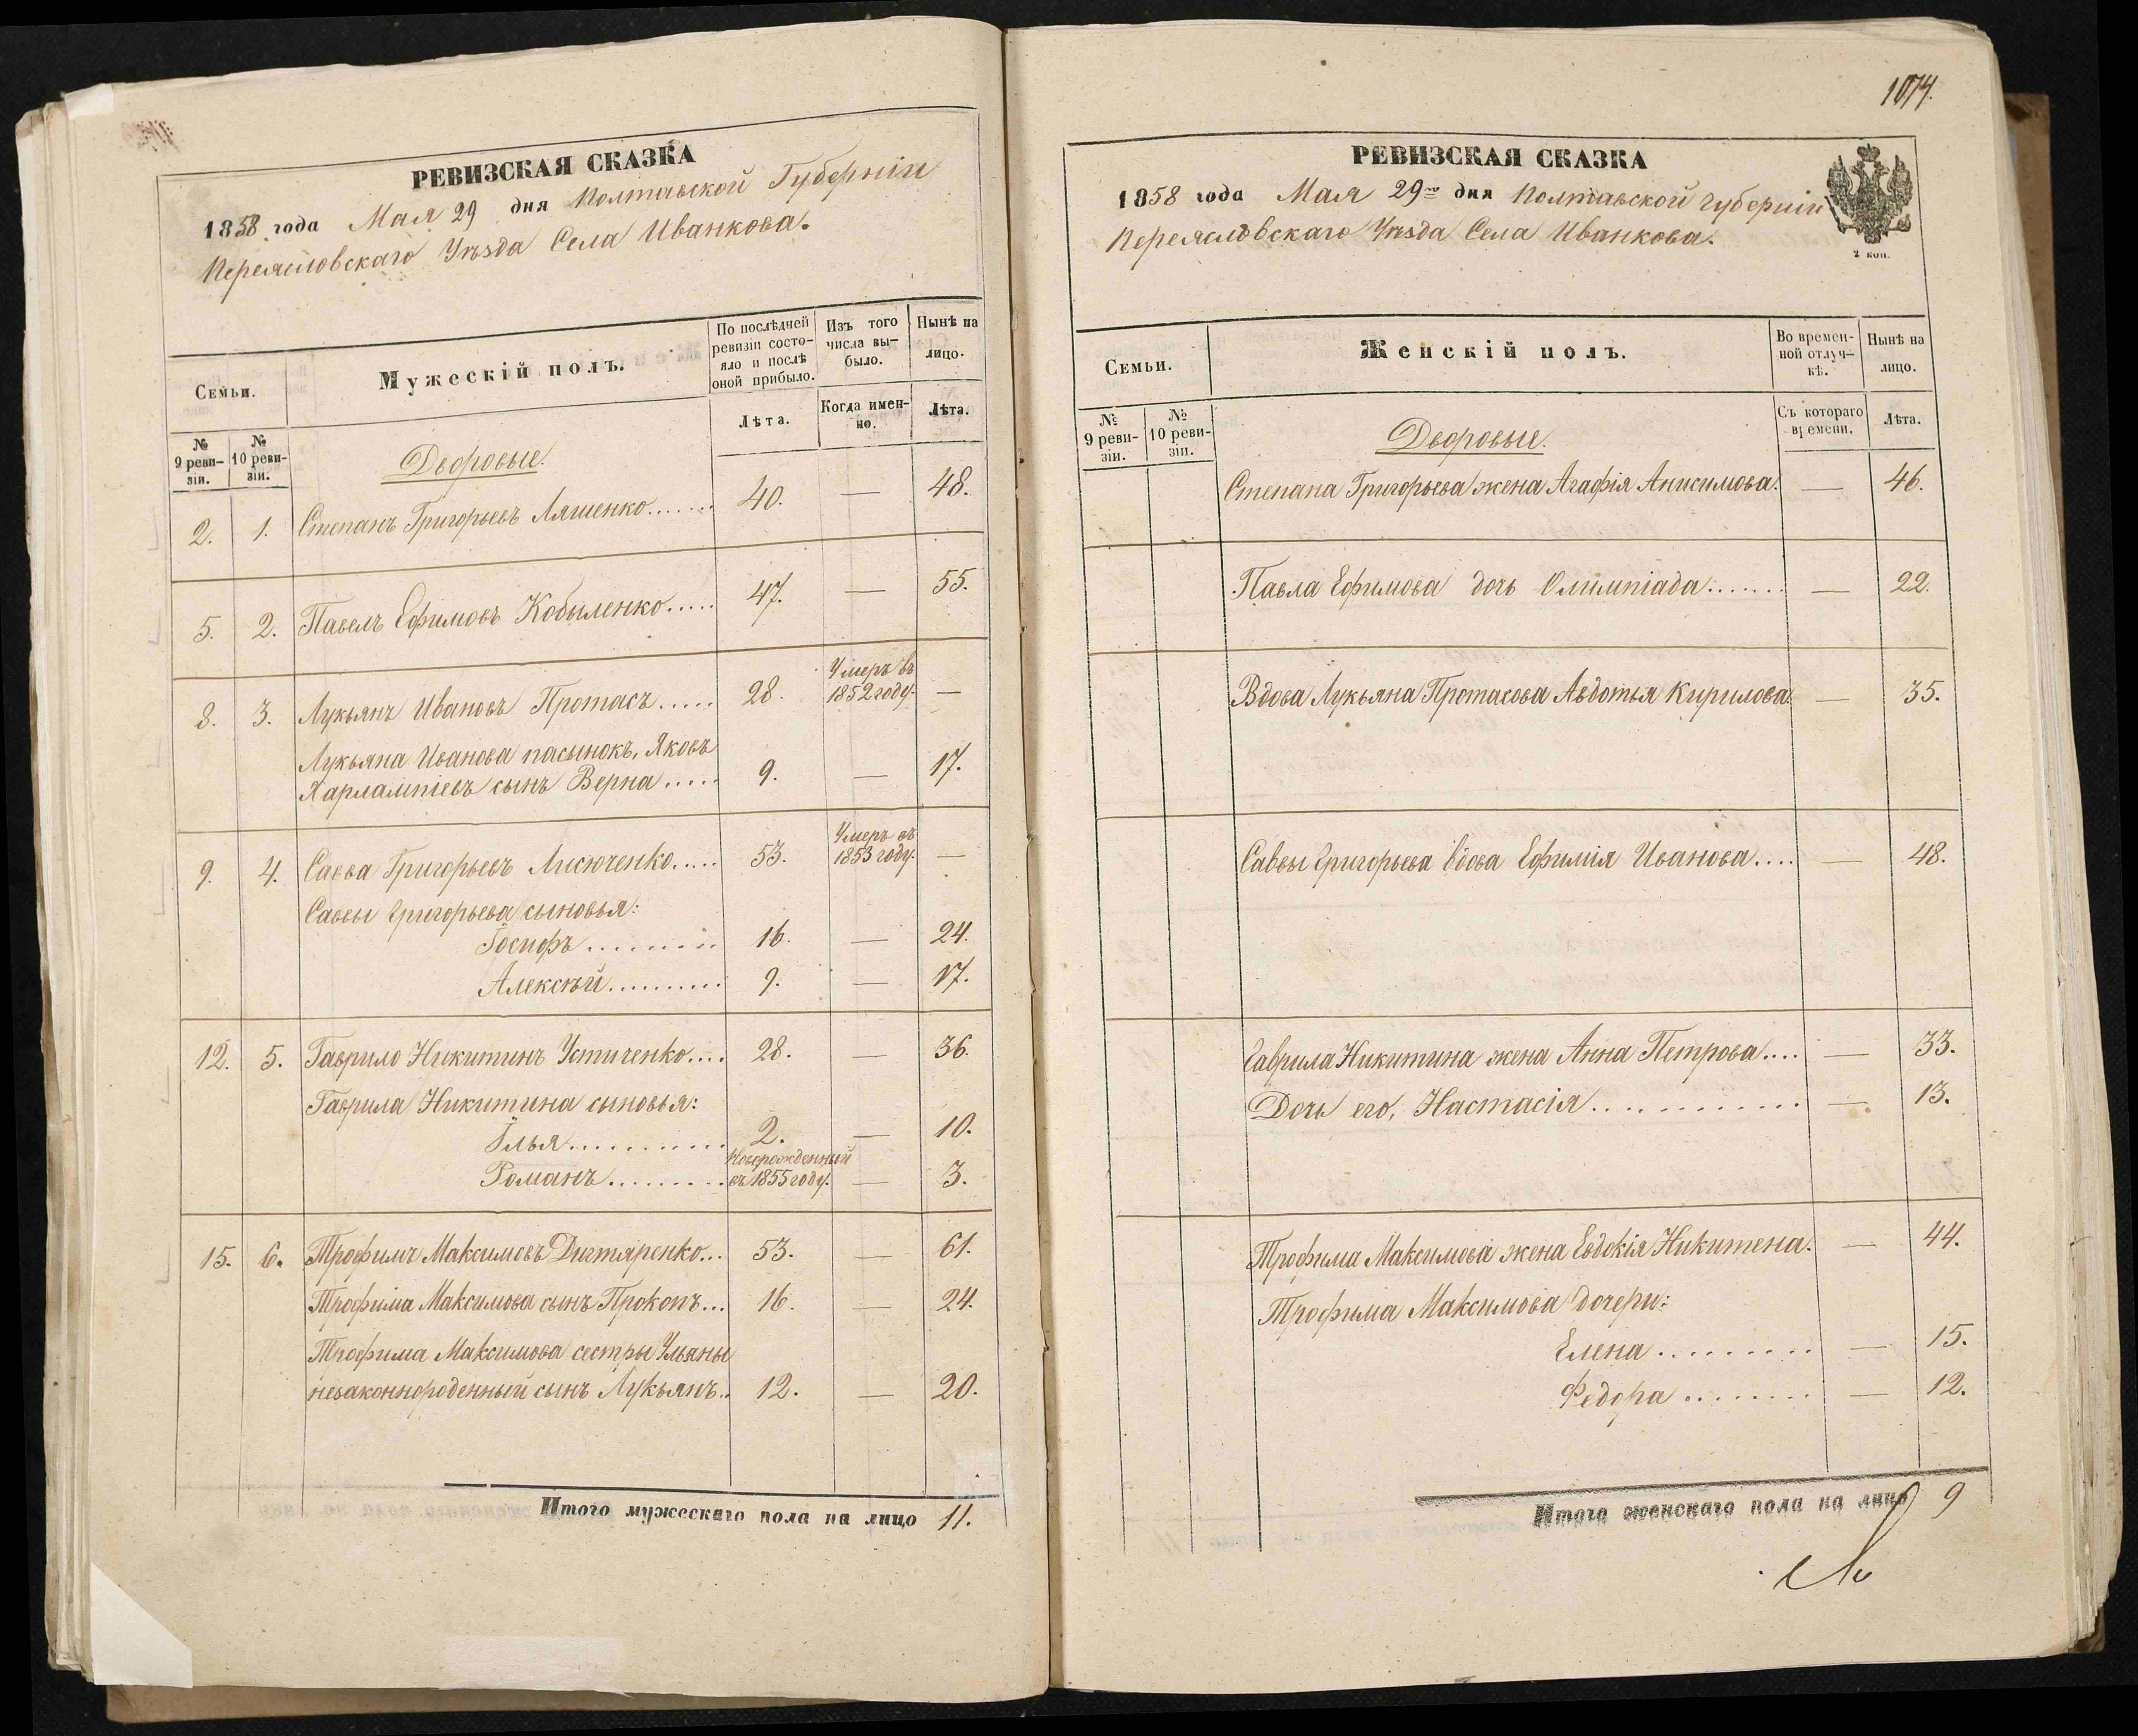 РЕВИЗСКАЯ СКАЗКА
1858 года Мая 29 дня Полтавской Губерніи
Переясловскаго Уѣзда Села Иванкова.
Семьи.
Мужескій полъ.
По послѣдней ревизіи состо-яло и послѣ оной прибыло.
Изъ того числа вы-было.
Нынѣ на лицо.
№ 9 реви-зіи.
№ 10 реви-зіи.
Лѣта.
Когда имен-но.
Лѣта.
Дворовые.
2. 1. Степанъ Григорьевъ Ляшенко....... 40. — 48.
5. 2. Павелъ Ефимовъ Кобыленко..... 47. — 55.
8. 3. Лукьянъ Ивановъ Протасъ..... 28. Умеръ въ 1852 году. —
Лукьяна Иванова пасынокъ, Яковъ
Харлампіевъ сынъ Верна..... 9. — 17.
9. 4. Савва Григорьевъ Лисюченко..... 53. Умеръ въ 1853 году. —
Саввы Григорьева сыновья:
Іосифъ......... 16. — 24.
Алексѣй.......... 9. — 17.
12. 5. Гаврило Никитинъ Устиченко.... 28. — 36.
Гаврила Никитина сыновья:
Илья........... 2. — 10.
Романъ......... Новорожденный въ 1855 году. — 3.
15. 6. Трофимъ Максимовъ Дигтяренко... 53. — 61.
Трофима Максимова сынъ Прокопъ... 16. — 24.
Трофима Максимова сестры Ульяны
незаконнороденный сынъ Лукьянъ.. 12. — 20.
Итого мужескаго пола на лицо 11.
1074.
РЕВИЗСКАЯ СКАЗКА
1858 года Мая 29го дня Полтавской Губерніи
Переясловскаго Уѣзда Села Иванкова.
2 коп.
Семьи.
Женскій полъ.
Во времен-ной отлуч-кѣ.
Нынѣ на лицо.
№ 9 реви-зіи.
№ 10 реви-зіи.
Съ котораго времени.
Лѣта.
Дворовые.
Степана Григорьева жена Агафія Анисимова. — 46.
Павла Ефимова дочь Олимпіада....... — 22.
Вдова Лукьяна Протасова Авдотья Кирилова. — 35.
Саввы Григорьева вдова Ефимія Иванова.... — 48.
Гаврила Никитина жена Анна Петрова.... — 33.
Дочь его, Настасія............. — 13.
Трофима Максимова жена Евдокія Никитена. — 44.
Трофима Максимова дочери:
Елена......... — 15.
Федора........ — 12.
Итого женскаго пола на лицо 9